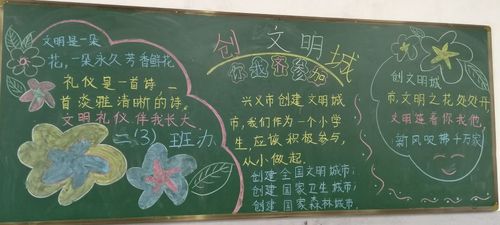 文明是一朵
花，一朵永久芳香鲜花
礼仪是一首诗，一
首淡雅清晰的诗。
文明礼仪伴我长大
二（3）班办
创文明城
你我齐参加
兴义市创建文明城
市，我们作为一个小学
生，应该积极参与，
从小做起。
创建全国文明城市；
创建国家卫生城市；
创建国家森林城市
创文明城
市，文明之花处处开
文明连着你我他，
新风吹拂十万家